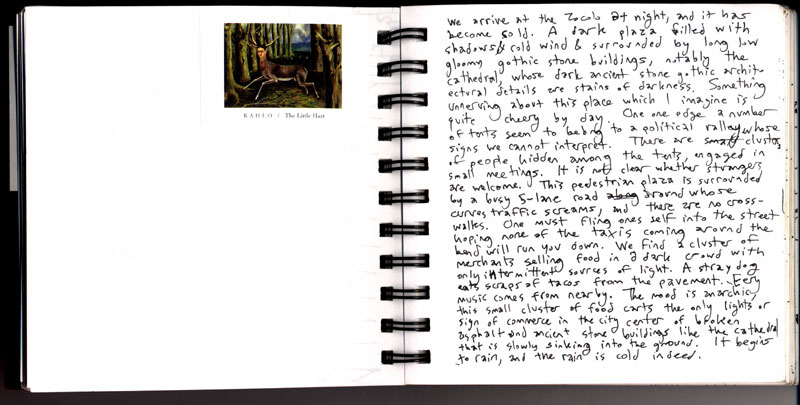 KAHLO / The Little Hart
We arrive at the Zocolo at night, and it has
become cold. A dark plaza filled with
shadows & cold wind & surrounded by long low
gloomy gothic stone buildings, notably the
cathedral, whose dark ancient stone gothic archit-
ectural details are stains of darkness. Something
unnerving about this place which I imagine is
quite cheery by day. One one edge a number
of tents seem to belong to a political rally whose
signs we cannot interpret. There are small clusters
of people hidden among the tents, engaged in
small meetings. It is not clear whether strangers
are welcome. This pedestrian plaza is surrounded
by a busy 5-lane road along around whose
curves traffic screams, and there are no cross-
walks. One must fling ones self into the street
hoping none of the taxis coming around the
bend will run you down. We find a cluster of
merchants selling food in a dark crowd with
only intermittent sources of light. A stray dog
eats scraps of tacos from the pavement. Eery
music comes from nearby. The mood is anarchic,
this small cluster of food carts the only lights or
sign of commerce in the city center of broken
asphalt and ancient stone buildings like the cathedral
that is slowly sinking into the ground. It begins
to rain, and the rain is cold indeed.